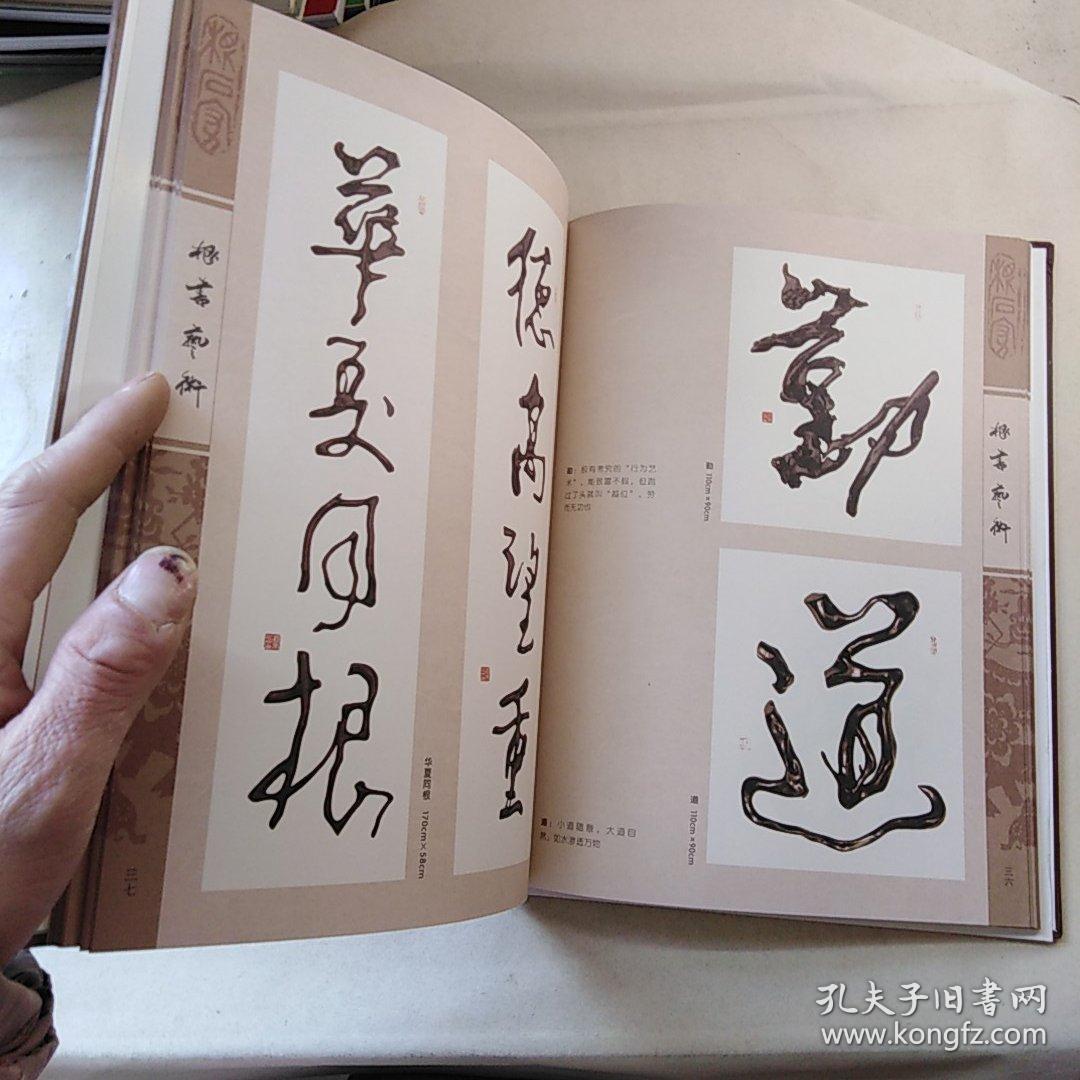 根書藝術
華夏同根
华夏同根 170cm×58cm
三七
德高望重
勤
勤：颇有需究的“行为艺
术”，能致富不假，但跑
过了头就叫“越位”，劳
而无功也
勤 110cm×90cm
道
道：小道随意，大道自
然，如水渗透万物
道 110cm×90cm
根書藝術
三六
孔夫子旧书网
www.kongfz.com